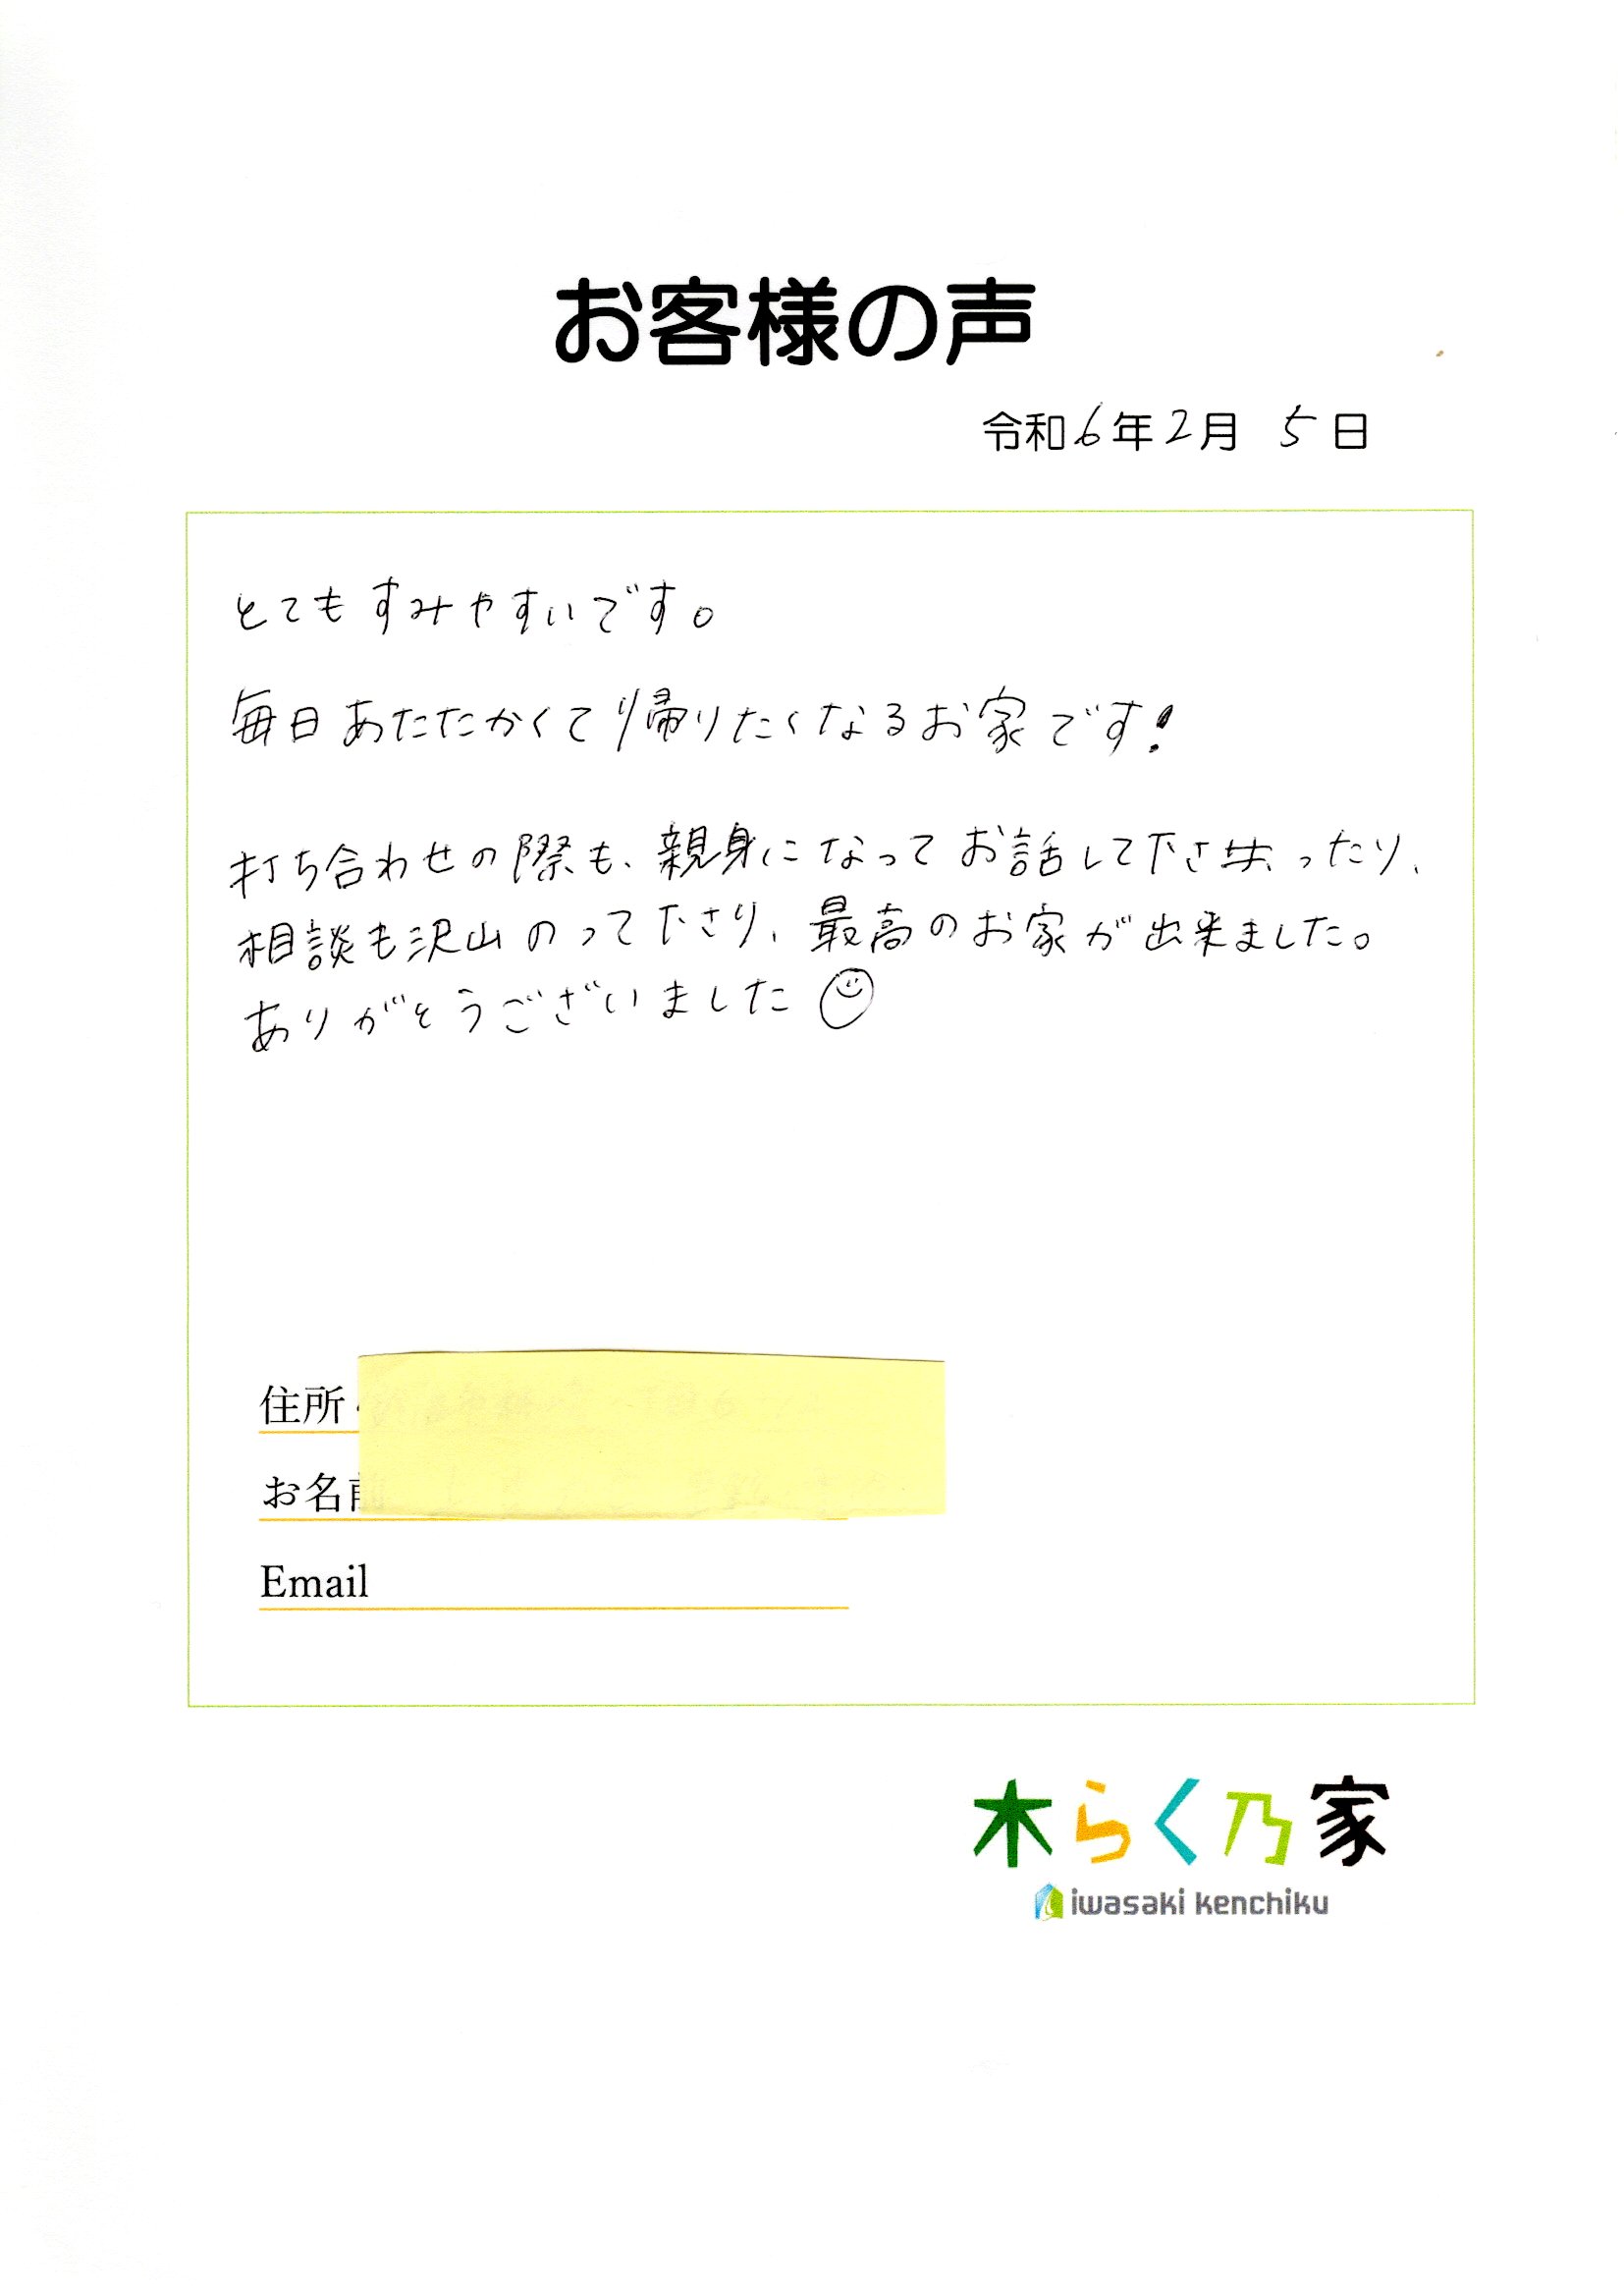 お客様の声
令和6年2月5日
とてもすみやすいです。
毎日あたたかくて帰りたくなるお家です!
打ち合わせの際も、親身になってお話して下さったり、
相談も沢山のって下さり、最高のお家が出来ました。
ありがとうございました
住所
お名前
Email
木らく乃家
iwasaki kenchiku